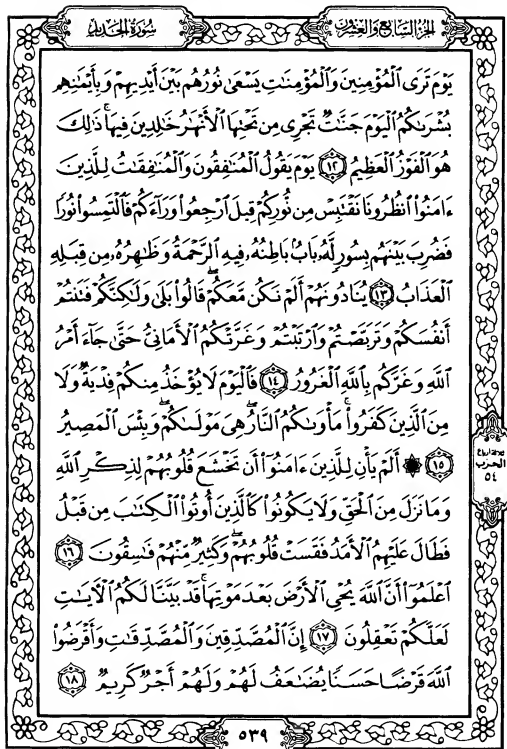 الجزء السابع والعشرون
سورة الحديد
يَوْمَ تَرَى ٱلْمُؤْمِنِينَ وَٱلْمُؤْمِنَـٰتِ يَسْعَىٰ نُورُهُم بَيْنَ أَيْدِيهِمْ وَبِأَيْمَـٰنِهِم
بُشْرَىٰكُمُ ٱلْيَوْمَ جَنَّـٰتٌ تَجْرِى مِن تَحْتِهَا ٱلْأَنْهَـٰرُ خَـٰلِدِينَ فِيهَا ۚ ذَٰلِكَ
هُوَ ٱلْفَوْزُ ٱلْعَظِيمُ ١٢ يَوْمَ يَقُولُ ٱلْمُنَـٰفِقُونَ وَٱلْمُنَـٰفِقَـٰتُ لِلَّذِينَ
ءَامَنُوا۟ ٱنظُرُونَا نَقْتَبِسْ مِن نُّورِكُمْ قِيلَ ٱرْجِعُوا۟ وَرَآءَكُمْ فَٱلْتَمِسُوا۟ نُورًا
فَضُرِبَ بَيْنَهُم بِسُورٍ لَّهُۥ بَابٌۢ بَاطِنُهُۥ فِيهِ ٱلرَّحْمَةُ وَظَـٰهِرُهُۥ مِن قِبَلِهِ
ٱلْعَذَابُ ١٣ يُنَادُونَهُمْ أَلَمْ نَكُن مَّعَكُمْ ۖ قَالُوا۟ بَلَىٰ وَلَـٰكِنَّكُمْ فَتَنتُمْ
أَنفُسَكُمْ وَتَرَبَّصْتُمْ وَٱرْتَبْتُمْ وَغَرَّتْكُمُ ٱلْأَمَانِىُّ حَتَّىٰ جَآءَ أَمْرُ
ٱللَّهِ وَغَرَّكُم بِٱللَّهِ ٱلْغَرُورُ ١٤ فَٱلْيَوْمَ لَا يُؤْخَذُ مِنكُمْ فِدْيَةٌ وَلَا
مِنَ ٱلَّذِينَ كَفَرُوا۟ ۚ مَأْوَىٰكُمُ ٱلنَّارُ ۖ هِىَ مَوْلَىٰكُمْ ۖ وَبِئْسَ ٱلْمَصِيرُ
١٥ ۞ أَلَمْ يَأْنِ لِلَّذِينَ ءَامَنُوٓا۟ أَن تَخْشَعَ قُلُوبُهُمْ لِذِكْرِ ٱللَّهِ
وَمَا نَزَلَ مِنَ ٱلْحَقِّ وَلَا يَكُونُوا۟ كَٱلَّذِينَ أُوتُوا۟ ٱلْكِتَـٰبَ مِن قَبْلُ
فَطَالَ عَلَيْهِمُ ٱلْأَمَدُ فَقَسَتْ قُلُوبُهُمْ ۖ وَكَثِيرٌ مِّنْهُمْ فَـٰسِقُونَ ١٦
ٱعْلَمُوٓا۟ أَنَّ ٱللَّهَ يُحْىِ ٱلْأَرْضَ بَعْدَ مَوْتِهَا ۚ قَدْ بَيَّنَّا لَكُمُ ٱلْـَٔايَـٰتِ
لَعَلَّكُمْ تَعْقِلُونَ ١٧ إِنَّ ٱلْمُصَّدِّقِينَ وَٱلْمُصَّدِّقَـٰتِ وَأَقْرَضُوا۟
ٱللَّهَ قَرْضًا حَسَنًا يُضَـٰعَفُ لَهُمْ وَلَهُمْ أَجْرٌ كَرِيمٌ ١٨
ثلاثة أرباع
الحزب
٥٤
٥٣٩